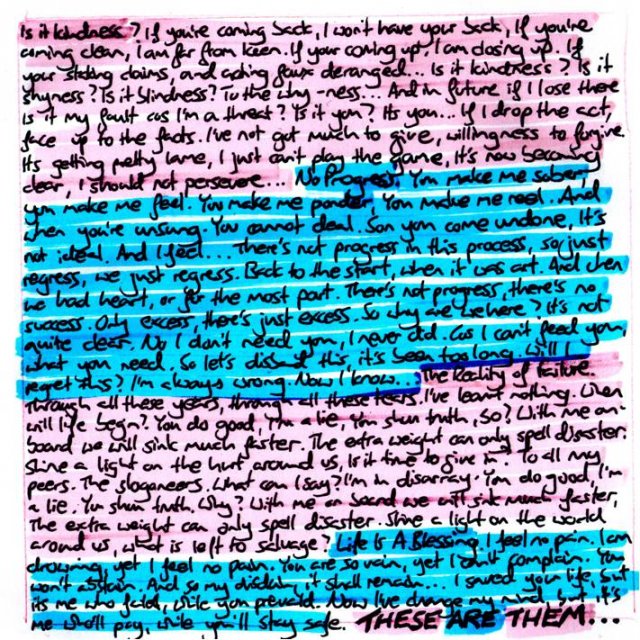 Is it kindness? If you're coming back, I won't have your back, If you're
coming clean, I am far from keen. If your coming up, I am closing up. If
your staking claims, and acting faux deranged... Is it kindness? Is it
shyness? Is it blindness? To the why-ness... And in future if I lose there
is it my fault cos I'm a threat? Is it you? Its you... If I drop the act,
face up to the facts. I've not got much to give, willingness to forgive.
Its getting pretty lame, I just can't play the game, It's now becoming
clear, I should not persevere... No Progress. You make me sober,
you make me feel. You make me ponder, You make me reel. And
when you're unsung. You cannot deal. Soon you come undone, It's
not ideal. And I feel... There's not progress in this process, so just
regress, we just regress. Back to the start, when it was art. And when
we had heart, or for the most part. There's not progress, there's no
success. Only excess, there's just excess. So why are we here? It's not
quite clear. No I don't need you, I never did. Cos I can't feed you,
what you need. So let's disband this, it's been too long. Will I
regret this? I'm always wrong. Now I know... The Reality of Failure.
Through all these years, through all these tears. I've learnt nothing. When
will life begin? You do good, I'm a lie, You shun truth, So? With me on-
board we will sink much faster. The extra weight can only spell disaster.
Shine a light on the hurt around us, Is it time to give in? To all my
peers. The sloganeers. What can I say? I'm in disarray. You do good, I'm
a lie. You shun truth. Why? With me on board we will sink much faster,
The extra weight can only spell disaster. Shine a light on the world
around us, what is left to salvage? Life Is A Blessing. I feel no pain. I am
drowning, yet I feel no pain. You are so vain, yet I don't complain. You
won't abstain. And so my disdain, it shall remain... I saved your life, but
its me who failed, while you prevailed. Now I've change my mind, but it's
me who'll pay, while you'll stay safe. THESE ARE THEM...